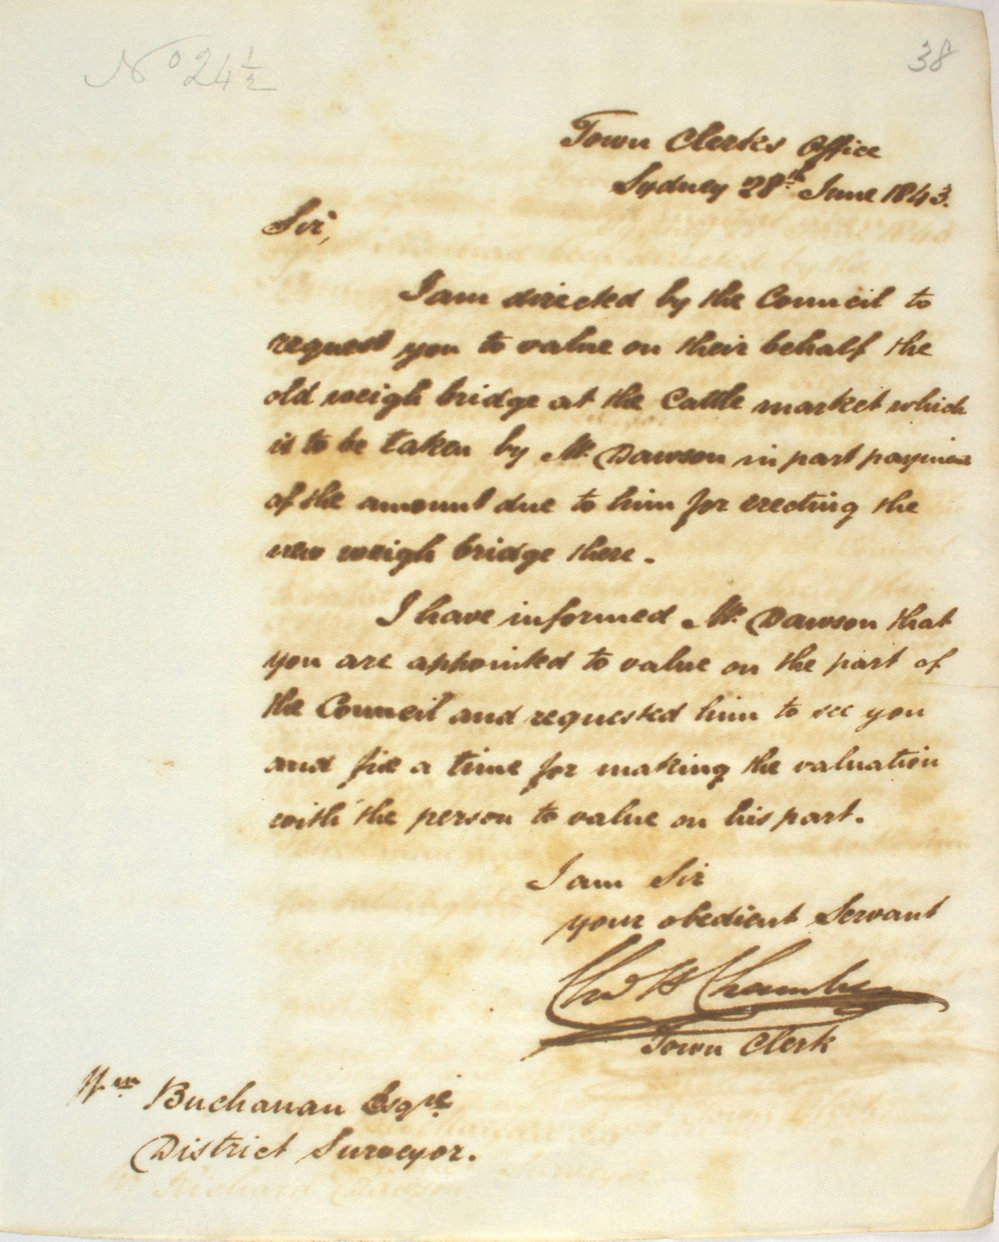 No 24 1/2
38
Town Clerks Office
Sydney 28th June 1843.
Sir,
I am directed by the Council to
request you to value on their behalf the
old weigh bridge at the Cattle market which
is to be taken by Mr. Dawson in part payment
of the amount due to him for erecting the
new weigh bridge there.
I have informed Mr. Dawson that
you are appointed to value on the part of
the Council and requested him to see you
and fix a time for making the valuation
with the person to value on his part.
I am Sir
your obedient Servant
Chas H Chambers
Town Clerk
Wm Buchanan Esqre
District Surveyor.